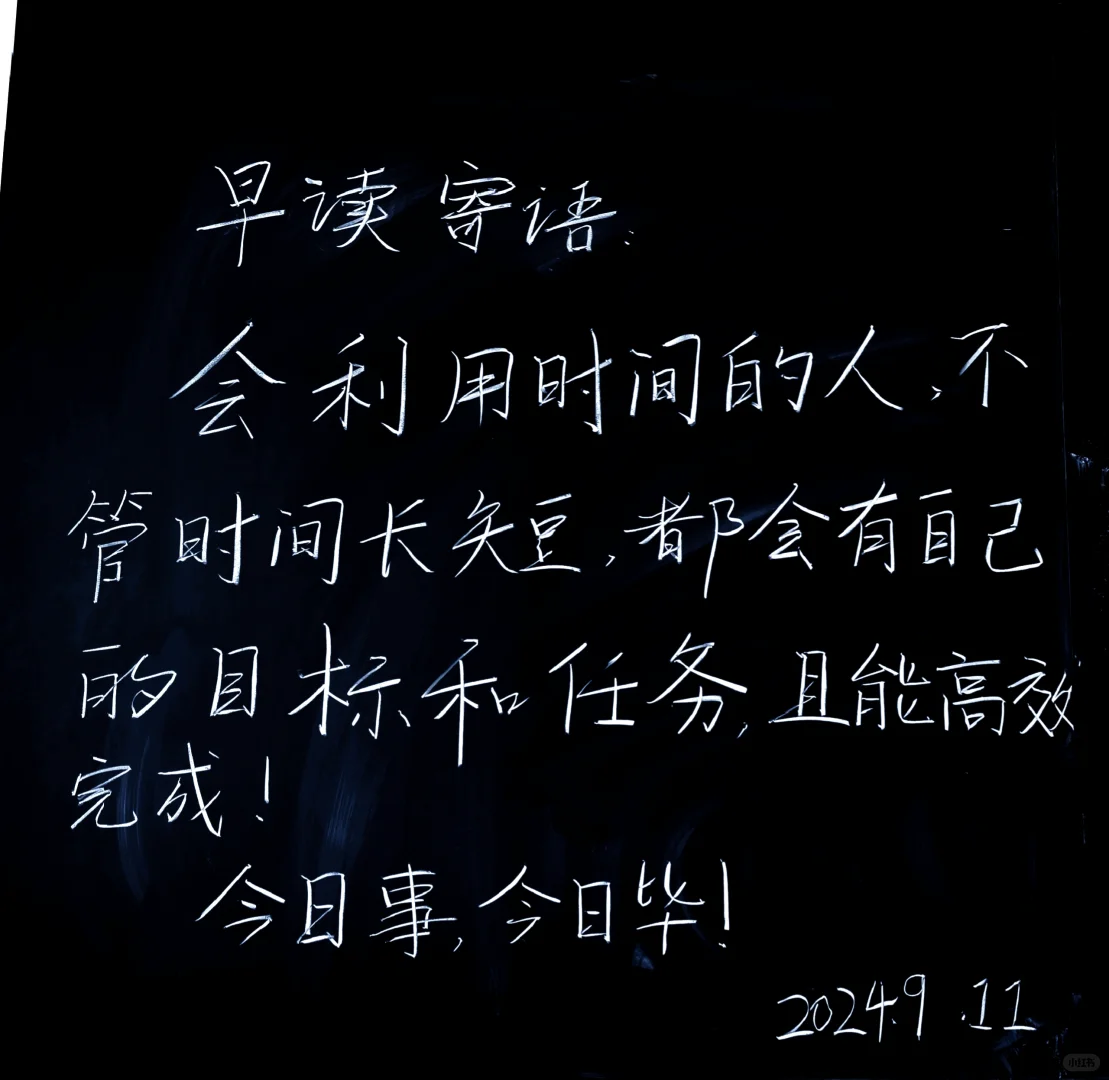 早读寄语:
会利用时间的人,不
管时间长短,都会有自己
的目标和任务,且能高效
完成!
今日事,今日毕!
2024.9.11
小红书